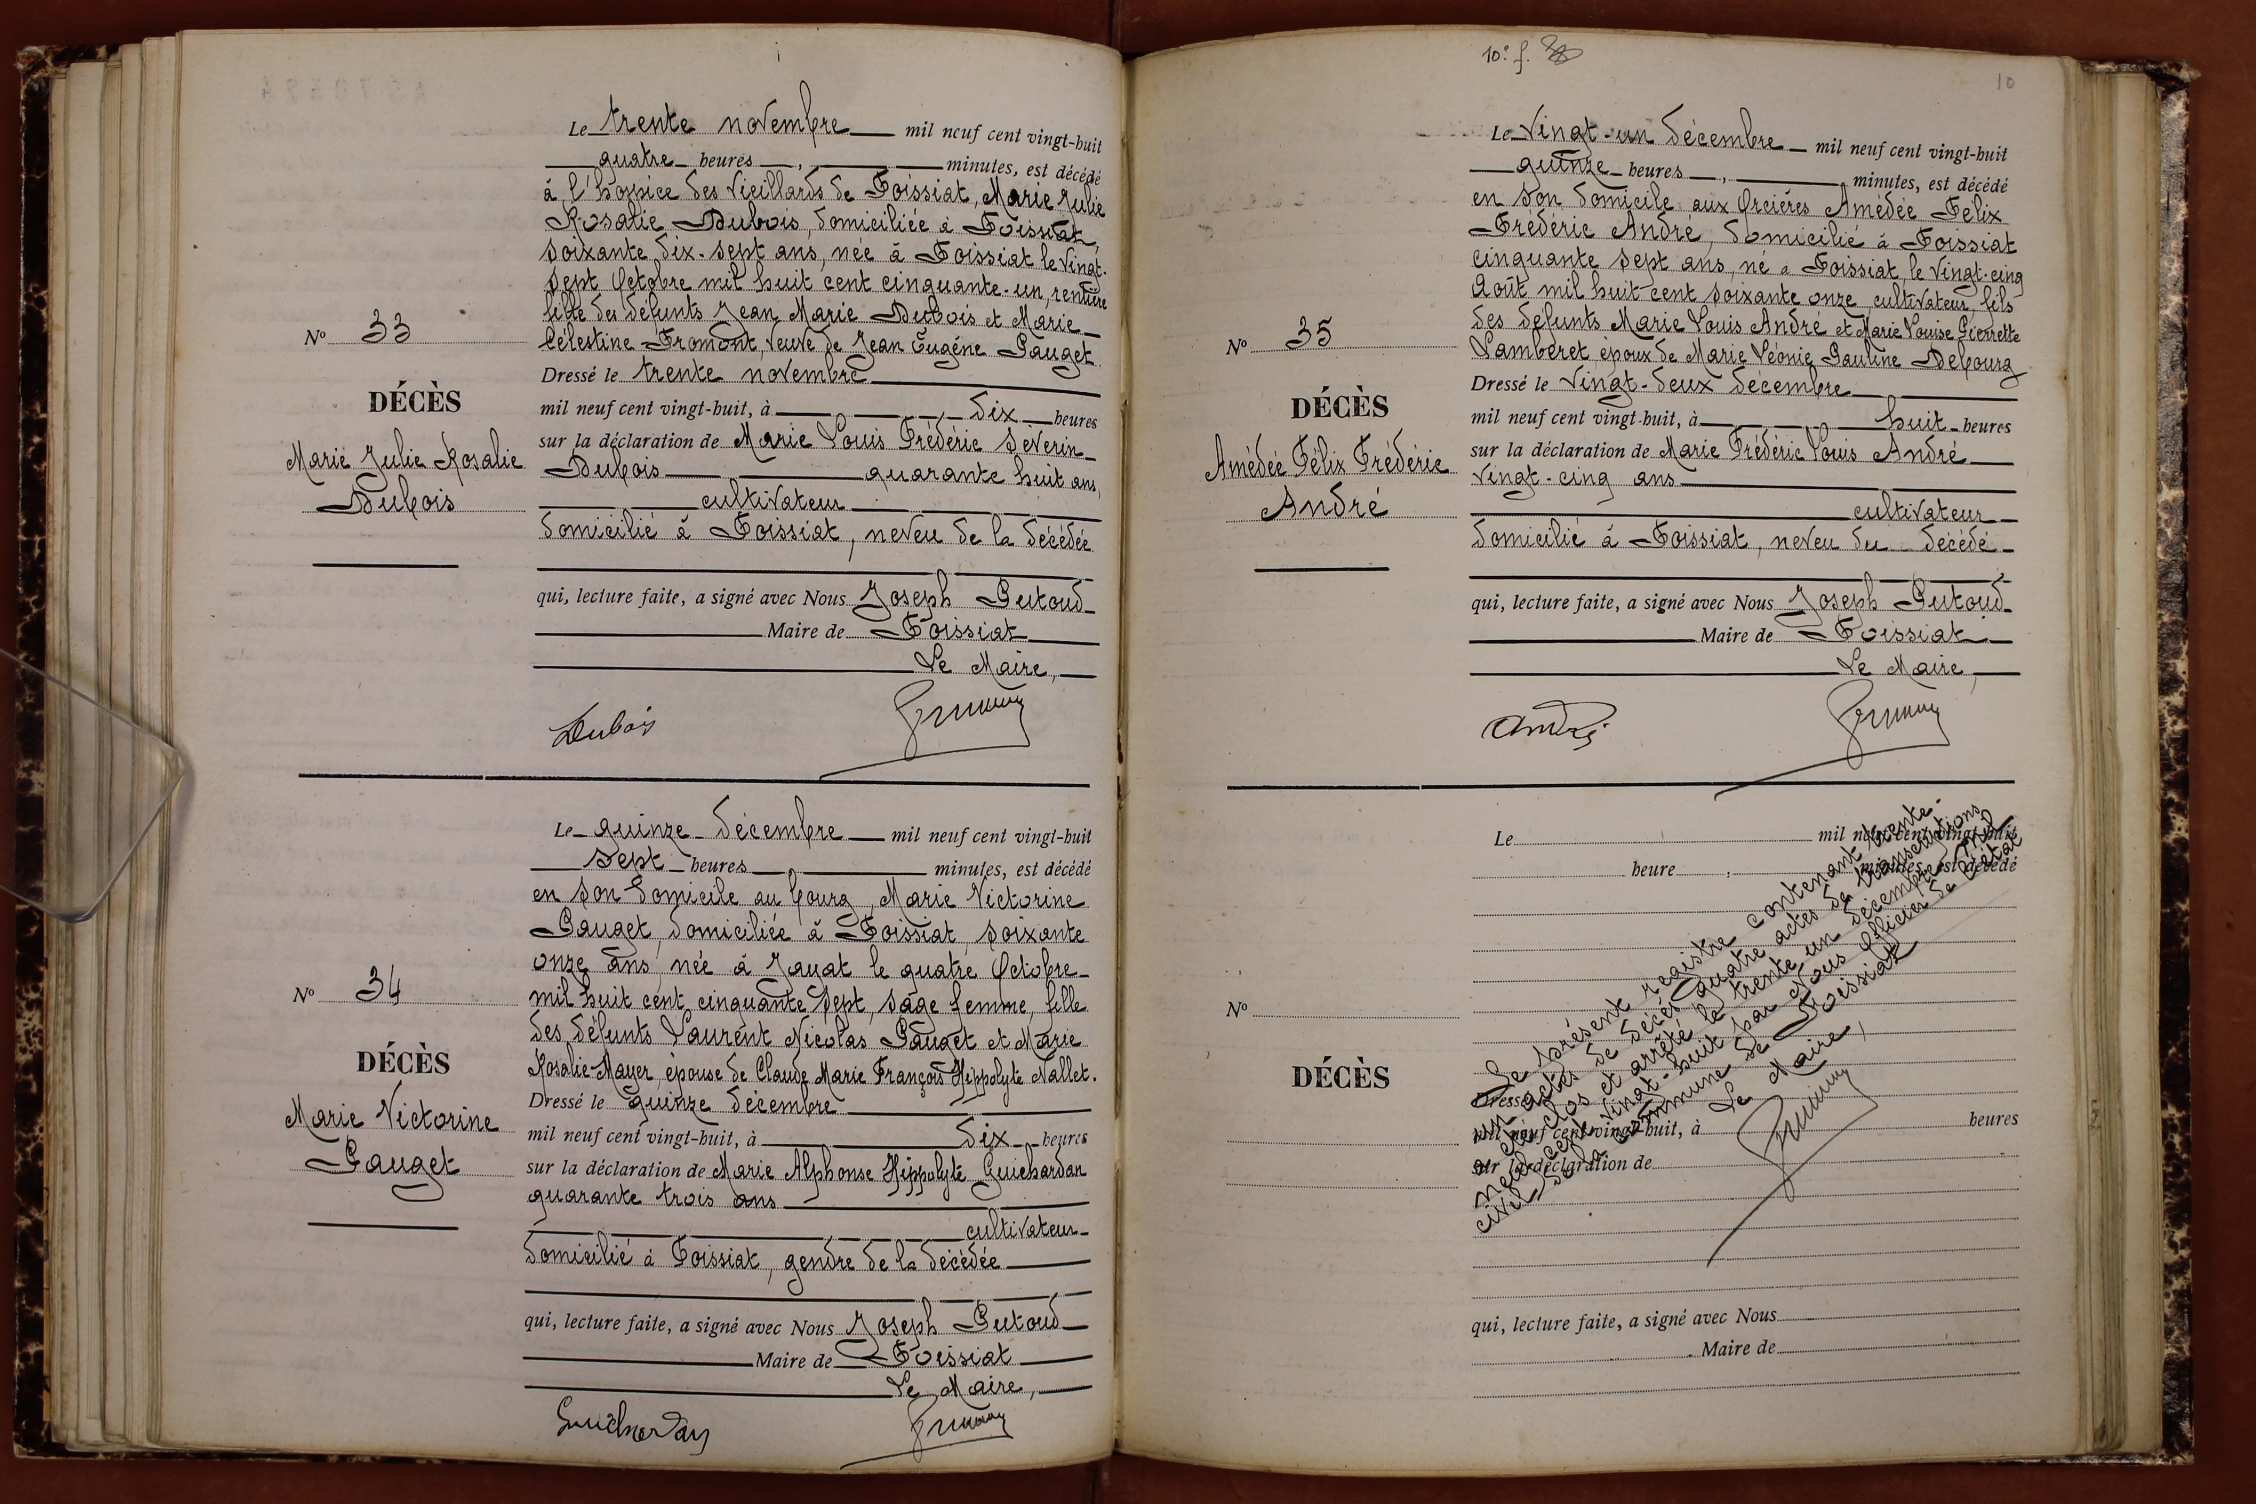 Le trente novembre mil neuf cent vingt-huit
quatre heures, minutes, est décédé
à l'hospice des Vieillards de Foissiat, Marie Julie
Rosalie Dubois, domiciliée à Foissiat,
soixante dix-sept ans, née à Foissiat le vingt-
sept Octobre mil huit cent cinquante-un, rentière
fille des défunts Jean Marie Dubois et Marie
Célestine Fromont, veuve de Jean Eugéne Pauget
Nº 33
DÉCÈS
Marie Julie Rosalie
Dubois
Dressé le trente novembre
mil neuf cent vingt-huit, à dix heures
sur la déclaration de Marie Louis Frédéric Séverin
Dubois quarante huit ans,
cultivateur
domicilié à Foissiat, neveu de la décédée
qui, lecture faite, a signé avec Nous Joseph Putoud
Maire de Foissiat
Le Maire,
Dubois
Le quinze décembre mil neuf cent vingt-huit
sept heures, minutes, est décédé
en son domicile au bourg, Marie Victorine
Pauget, domiciliée à Foissiat, soixante
onze ans, née à Jayat le quatre Octobre
mil huit cent cinquante sept, sage femme, fille
des défunts Laurent Nicolas Pauget et Marie
Rosalie Mayer, épouse de Claude Marie François Hippolyte Nallet.
Nº 34
DÉCÈS
Marie Victorine
Pauget
Dressé le quinze décembre
mil neuf cent vingt-huit, à dix heures
sur la déclaration de Marie Alphonse Hippolyte Guichardan
quarante trois ans
cultivateur
domicilié à Foissiat, gendre de la décédée
qui, lecture faite, a signé avec Nous Joseph Putoud
Maire de Foissiat
Le Maire,
Guichardan
10e f.
10
Le vingt-un décembre mil neuf cent vingt-huit
quinze heures, minutes, est décédé
en son domicile aux Orcières Amédée Félix
Frédéric André, domicilié à Foissiat
cinquante sept ans, né à Foissiat, le vingt-cinq
Août mil huit cent soixante onze, cultivateur, fils
des défunts Marie Louis André et Marie Louise Pierrette
Lamberet époux de Marie Léonie Pauline Debourg
Nº 35
DÉCÈS
Amédée Félix Frédéric
André
Dressé le vingt-deux décembre
mil neuf cent vingt-huit, à huit heures
sur la déclaration de Marie Frédéric Louis André
vingt-cinq ans
cultivateur
domicilié à Foissiat, neveu du décédé
qui, lecture faite, a signé avec Nous Joseph Putoud
Maire de Foissiat
Le Maire,
André
Le mil neuf cent vingt-huit
heure, minutes, est décédé
Nº
DÉCÈS
Dressé le
mil neuf cent vingt-huit, à heures
sur la déclaration de
Le présent registre contenant trente-
un actes de décès quatre actes de transcriptions
a été clos et arrêté le trente-un décembre mil
neuf cent vingt-huit par Nous Officier de l'état
civil de la commune de Foissiat
Le Maire,
qui, lecture faite, a signé avec Nous
Maire de